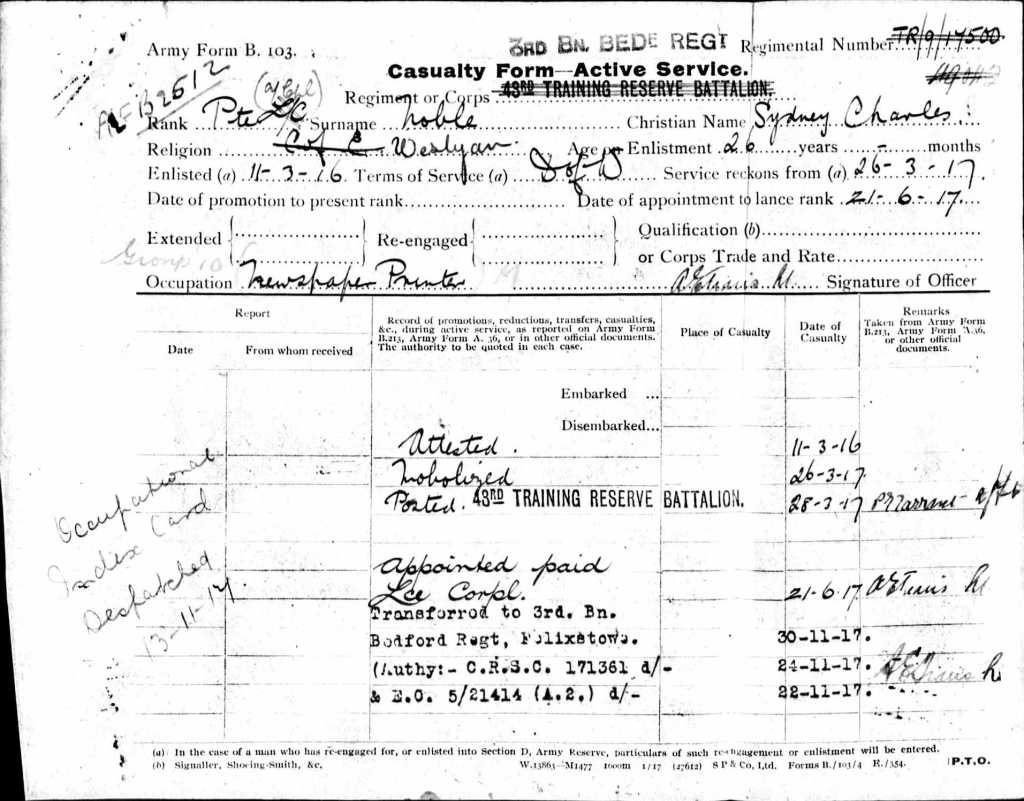 3RD BN. BEDF REGT
Regimental Number TR/9/17500
Army Form B. 103.
Casualty Form—Active Service.
B2612
(a/Cpl)
Regiment or Corps 43RD TRAINING RESERVE BATTALION.
Rank Pte L/C Surname Noble Christian Name Sydney Charles
Religion C of E Weslyan Age on Enlistment 26 years - months
Enlisted (a) 11-3-16 Terms of Service (a) D of W Service reckons from (a) 26-3-17.
Date of promotion to present rank Date of appointment to lance rank 21-6-17.
Extended Re-engaged Qualification (b)
Group 10
or Corps Trade and Rate
Occupation Newspaper Printer Signature of Officer
Report
Date
From whom received
Record of promotions, reductions, transfers, casualties,
&c., during active service, as reported on Army Form
B.213, Army Form A. 36, or in other official documents.
The authority to be quoted in each case.
Place of Casualty
Date of
Casualty
Remarks
Taken from Army Form
B.213, Army Form A.36,
or other official
documents.
Embarked ...
Disembarked...
Attested. 11-3-16
Mobolized 26-3-17.
Posted. 43RD TRAINING RESERVE BATTALION. 28-3-17
Occupational
Index Card
Despatched
13-11-17.
Appointed paid
Lce Corpl. 21-6-17
Transferrod to 3rd. Bn.
Bodford Regt, Felixstowe. 30-11-17.
(Authy:- C.R.S.C. 171361 d/- 24-11-17.
& E.C. 5/21414 (A.2.) d/- 22-11-17.
(a) In the case of a man who has re-engaged for, or enlisted into Section D, Army Reserve, particulars of such re-engagement or enlistment will be entered.
(b) Signaller, Shoeing-Smith, &c. W.13863—M1477 1000m 1/17 (27612) S P & Co, Ltd. Forms B./103/4 E./354. P.T.O.